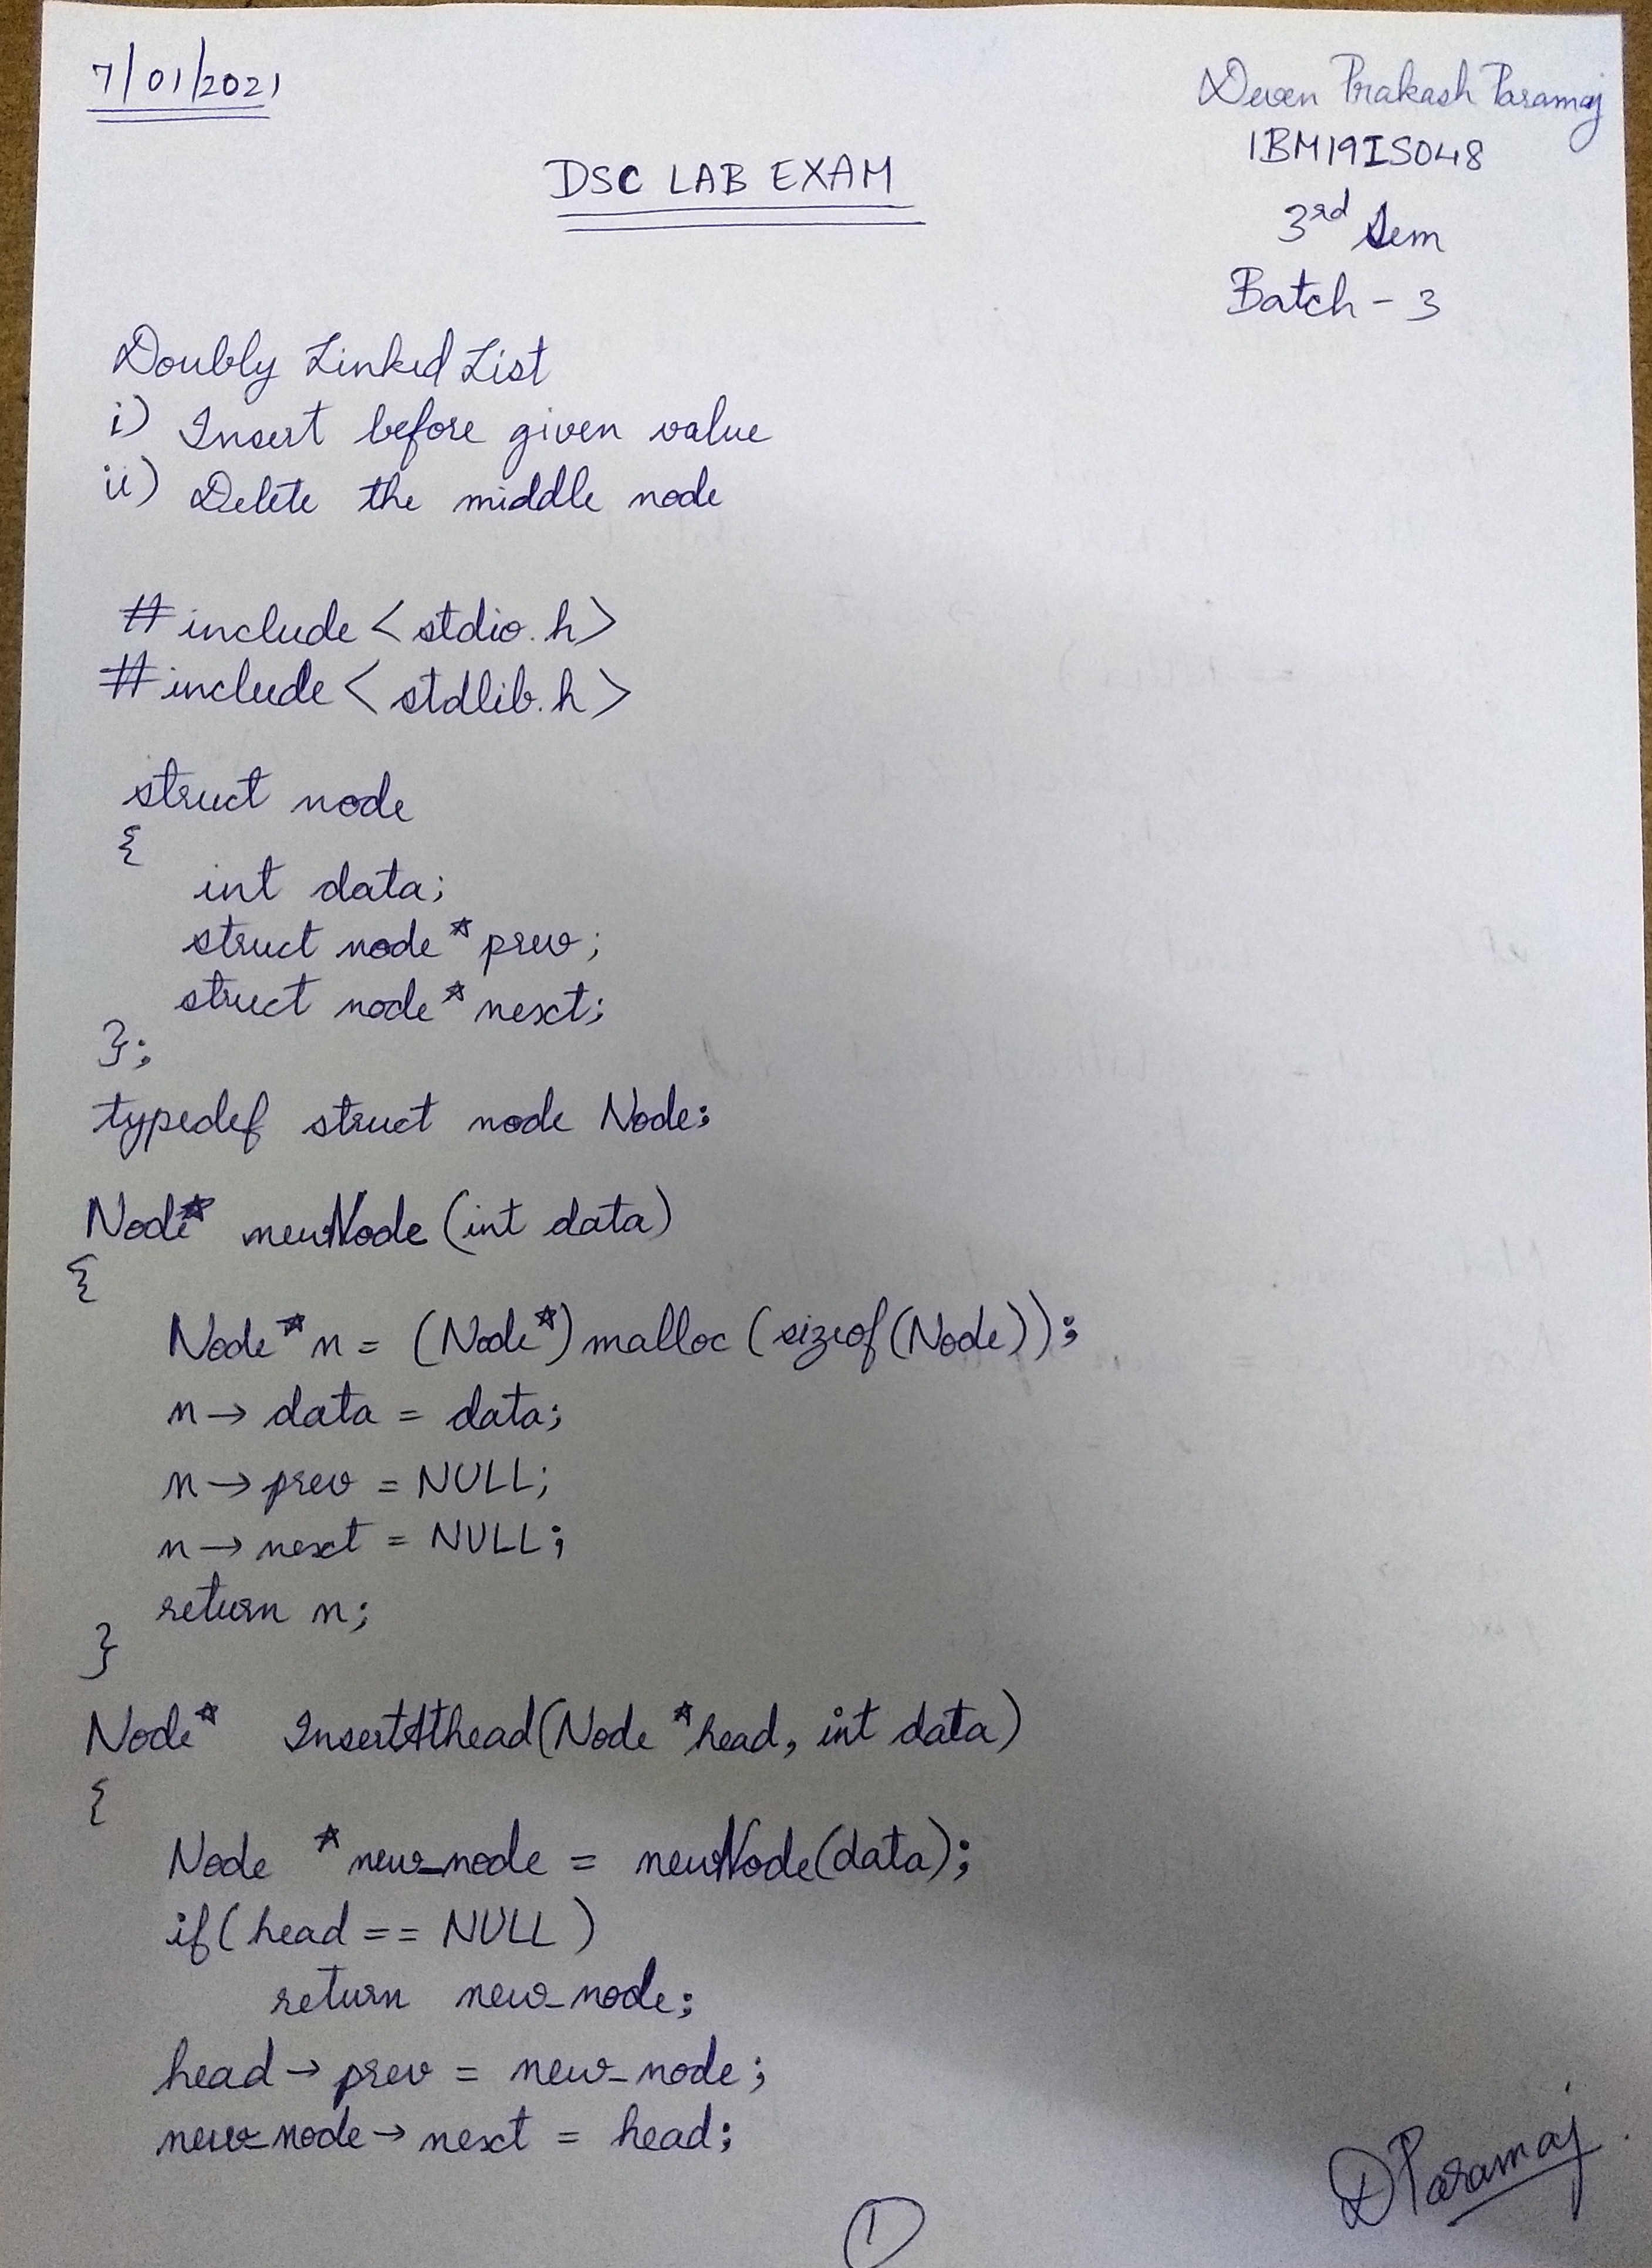 7/01/2021
Deven Prakash Paramaj
1BM19IS048
3rd Sem
Batch - 3
DSC LAB EXAM
Doubly Linked List
i) Insert before given value
ii) Delete the middle node
#include <stdio.h>
#include <stdlib.h>
struct node
{
int data;
struct node* prev;
struct node* next;
};
typedef struct node Node;
Node* newNode (int data)
{
Node* n = (Node*) malloc (sizeof(Node));
n → data = data;
n → prev = NULL;
n → next = NULL;
return n;
}
Node* InsertAthead(Node *head, int data)
{
Node *new_node = newNode(data);
if (head == NULL)
return new_node;
head → prev = new_node;
new_node → next = head;
DParamaj
1